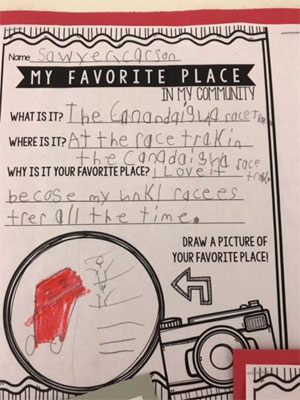 Name Sawyer carson
MY FAVORITE PLACE
IN MY COMMUNITY
WHAT IS IT? The Canandaigha race
WHERE IS IT? At the race trak in
the Canadaigha race
WHY IS IT YOUR FAVORITE PLACE? I Love it trak
becose my unkl racees
trer all the time.
DRAW A PICTURE
OF YOUR FAVORITE PLACE!